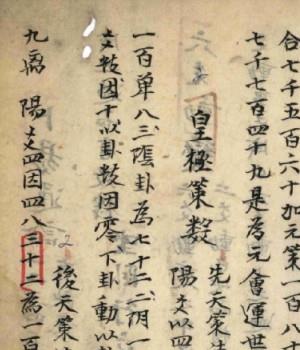 合七千五百六十加元策一百八十
七千七百四十九是為元會運世
皇極策數
先天策
陽爻以四
一百单八三隂卦為七十二阴一
爻数因十以卦数因零下卦動以
2
後天策
九為 陽爻四因四八三十二為一百